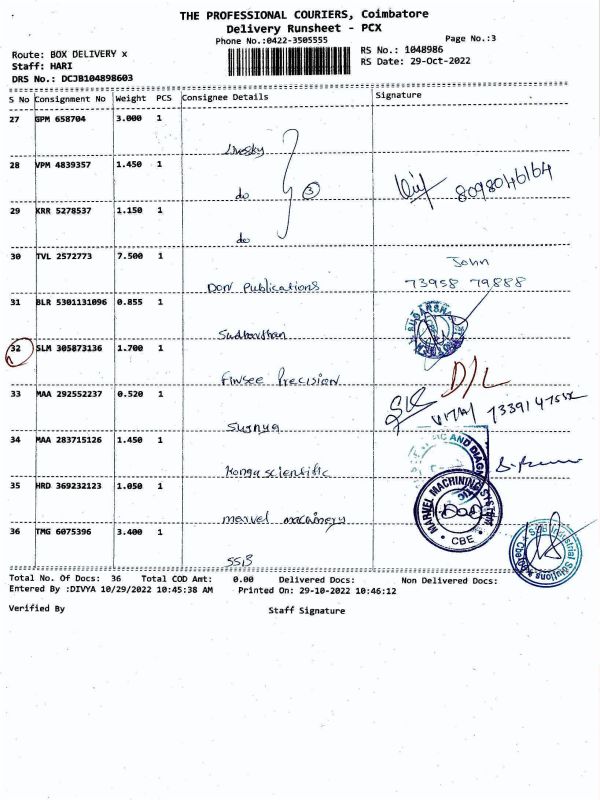 THE PROFESSIONAL COURIERS, Coimbatore
Delivery Runsheet - PCX
Phone No.:0422-3505555
Page No.:3
Route: BOX DELIVERY x
RS No.: 1048986
Staff: HARI
RS Date: 29-Oct-2022
DRS No.: DCJB104898603
S No Consignment No Weight PCS Consignee Details Signature
27 GPM 658704 3.000 1
28 VPM 4839357 1.450 1
do 3 8098046164
29 KRR 5278537 1.150 1
do
30 TVL 2572773 7.500 1
John
Don Publications 73958 79888
31 BLR 5301131096 0.855 1
32 SLM 305873136 1.700 1
Finsee Precision D/L
33 MAA 292552237 0.520 1
Surya
34 MAA 283715126 1.450 1
AND DIAG
Konga scientific
35 HRD 369232123 1.050 1
MARVEL MACHINING SYSTEM
CBE
marvel machinery
36 TMG 6075396 3.400 1
SSIS
Total No. Of Docs: 36 Total COD Amt: 0.00 Delivered Docs: Non Delivered Docs:
Entered By :DIVYA 10/29/2022 10:45:38 AM Printed On: 29-10-2022 10:46:12
Verified By Staff Signature